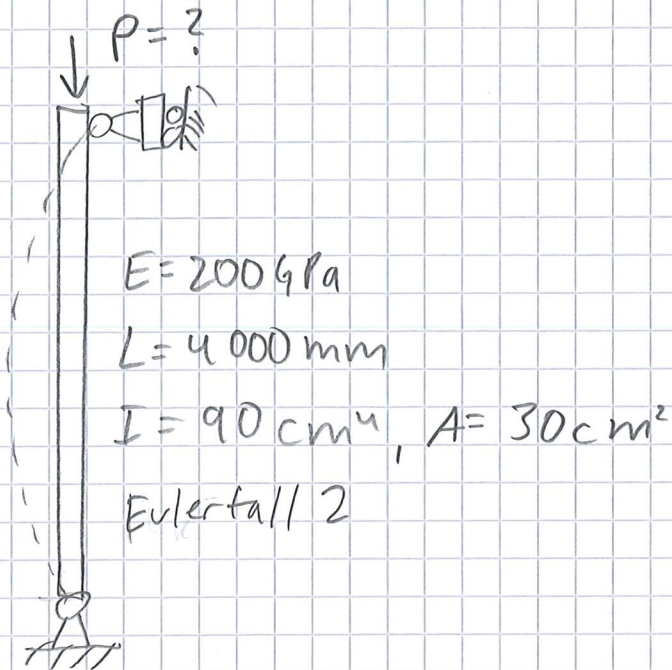 P = ?
E = 200 GPa
L = 4 000 mm
I = 90 cm⁴, A = 30 cm²
Eulerfall 2